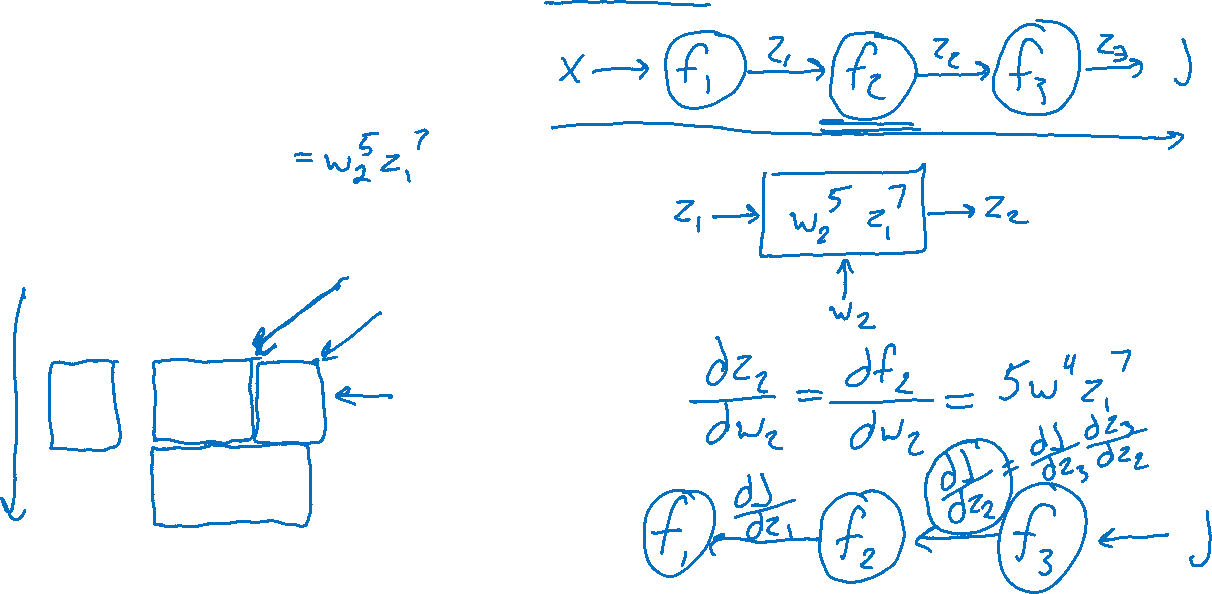 x → f₁ z₁ → f₂ z₂ → f₃ z₃ → J
= w₂⁵ z₁⁷
z₁ → w₂⁵ z₁⁷ → z₂
w₂
dz₂/dw₂ = df₂/dw₂ = 5w⁴ z₁⁷
dJ/dz₂ = dJ/dz₃ dz₃/dz₂
f₁ ← dJ/dz₁ f₂ ← f₃ ← J